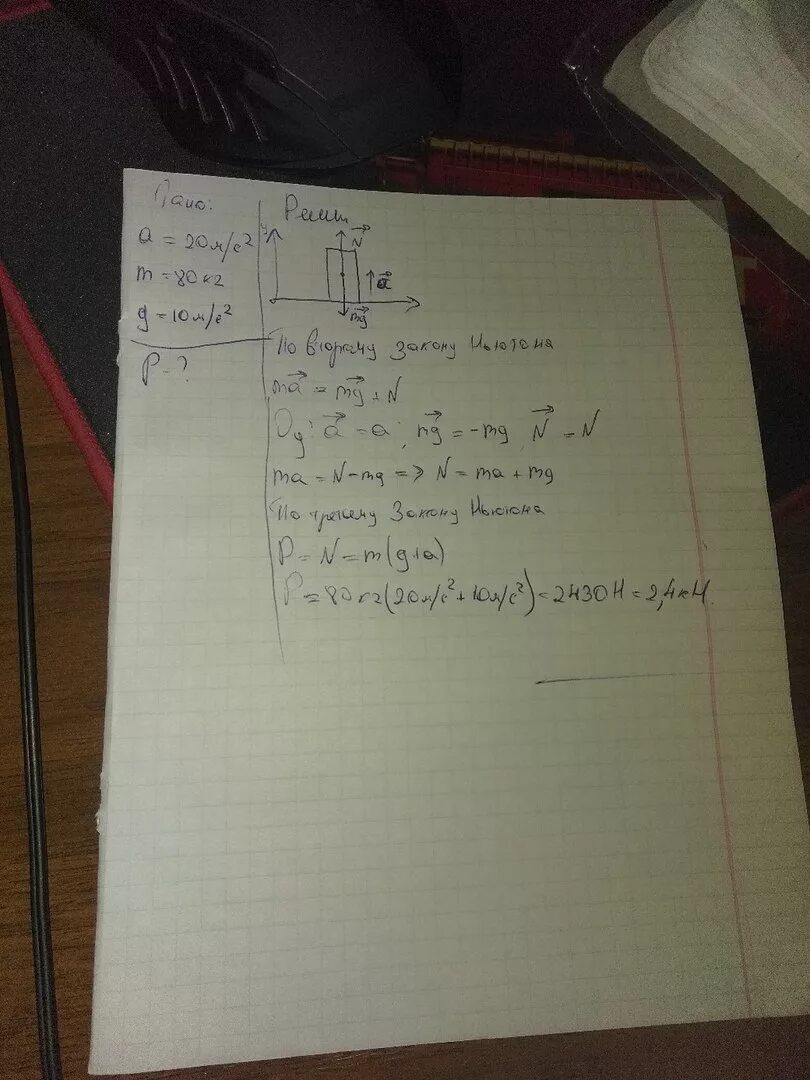 Дано:
a = 20 м/с²
m = 80 кг
g = 10 м/с²
P - ?
Реш
y
N
a
mg
По второму закону Ньютона
ma = mg + N
Oy: a = a; mg = -mg, N = N
ma = N - mg => N = ma + mg
По третему Закону Ньютона
P = N = m(g+a)
P = 80 кг(20 м/с² + 10 м/с²) = 2430 Н = 2,4 кН.